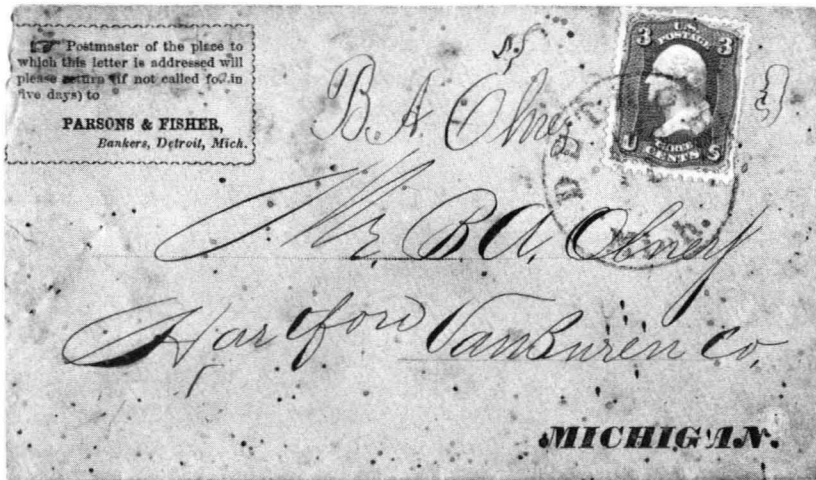 ☞ Postmaster of the place to
which this letter is addressed will
please return (if not called for in
five days) to
PARSONS & FISHER,
Bankers, Detroit, Mich.
B. A. Olney
U.S.
POSTAGE
3 3
THREE
U CENTS S
DETROIT
Mich.
Mr. B. A. Olney
Hartford VanBuren Co.
MICHIGAN.